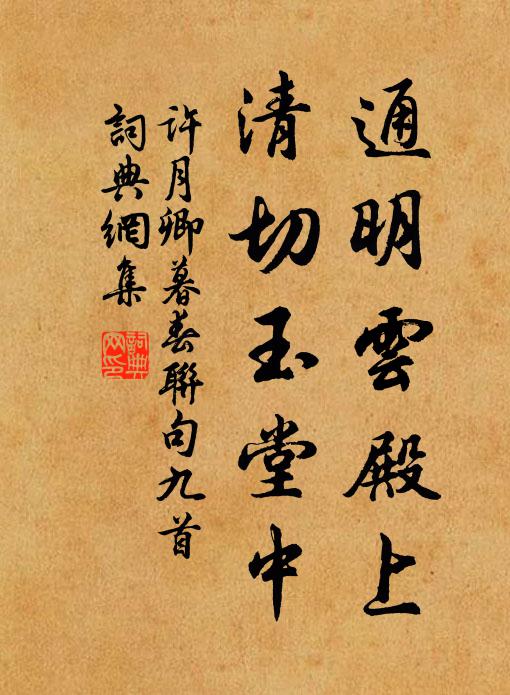 通明雲殿上
清切玉堂中
許月卿暮春聯句九首
詞典網集
詞典網印